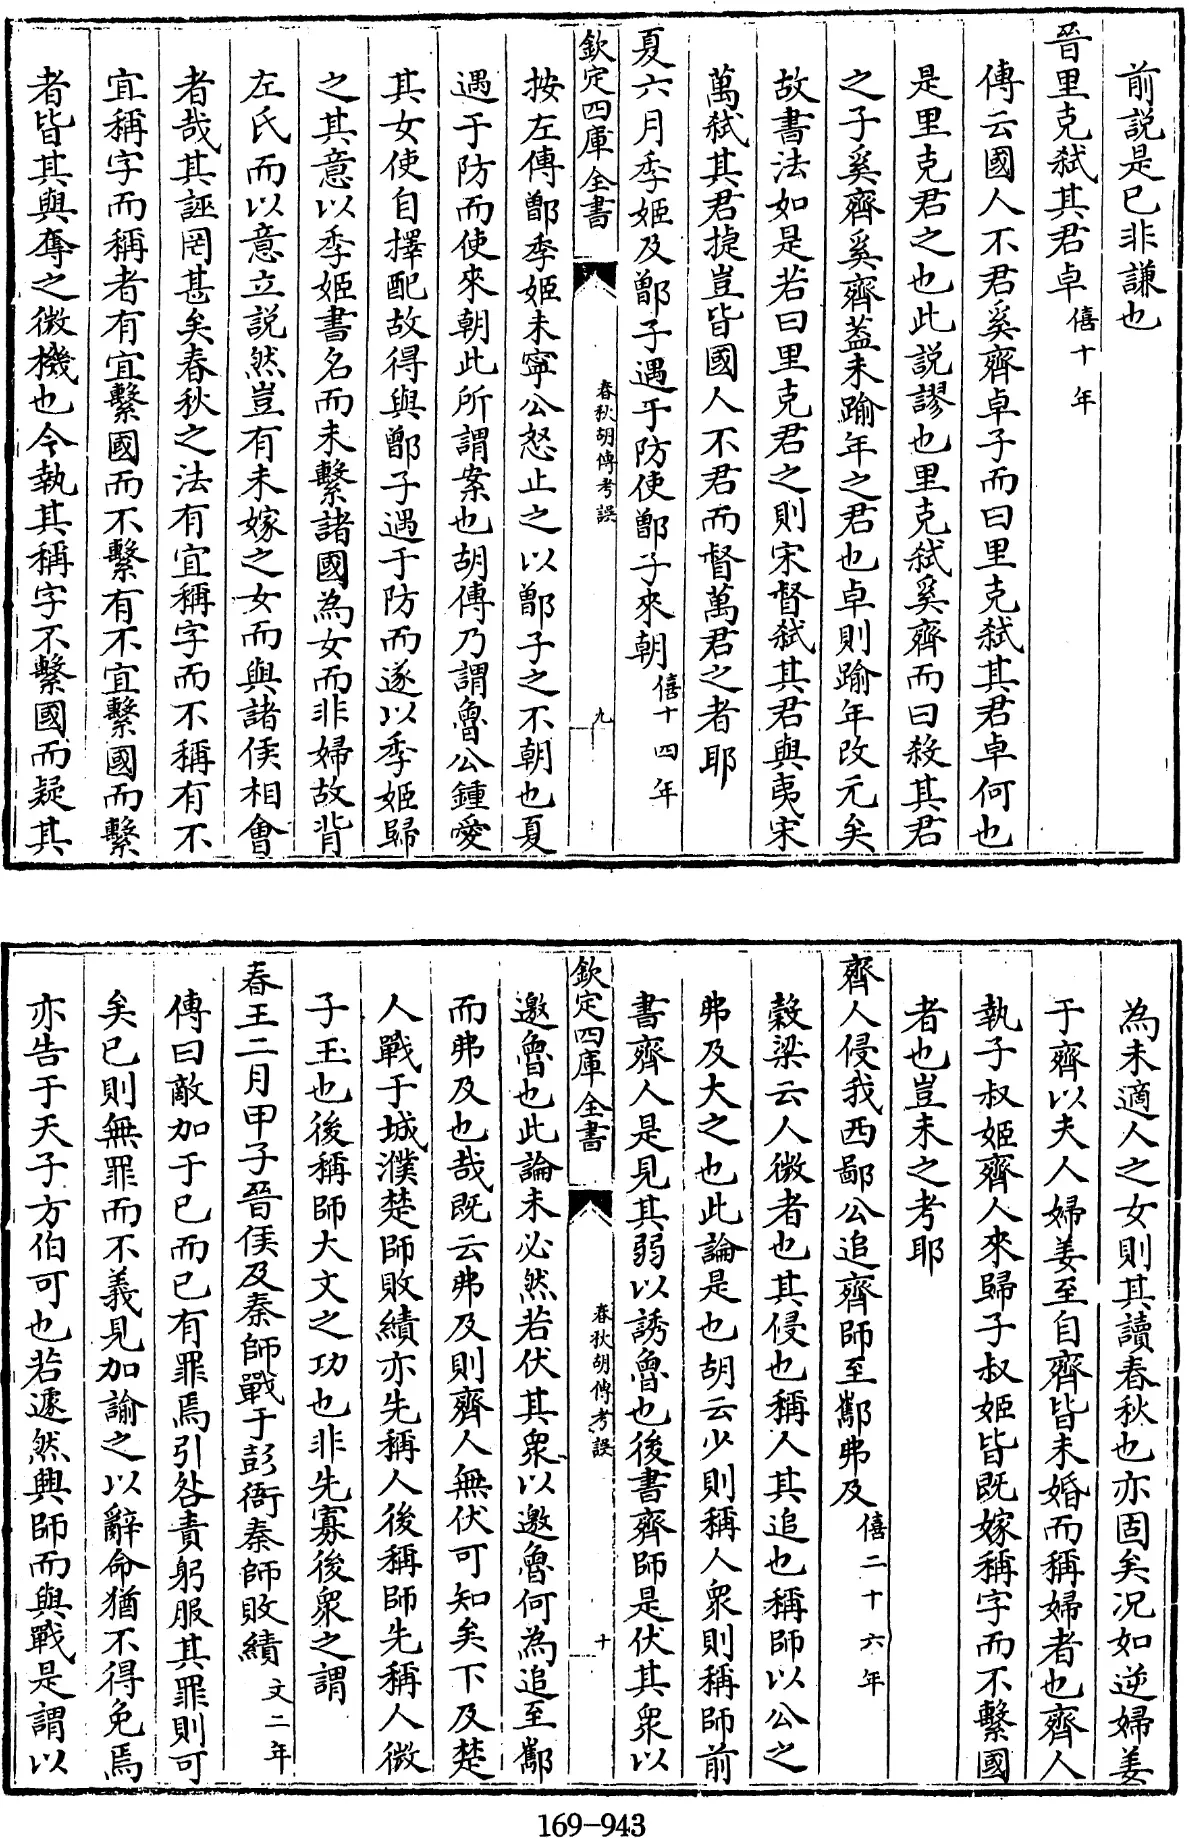 前説是已非謙也
晉里克弑其君卓僖十年
傳云國人不君奚齊卓子而曰里克弑其君卓何也
是里克君之也此説謬也里克弑奚齊而曰殺其君
之子奚齊奚齊葢未踰年之君也卓則踰年改元矣
故書法如是若曰里克君之則宋督弑其君與夷宋
萬弑其君捷豈皆國人不君而督萬君之者耶
夏六月季姬及鄫子遇于防使鄫子來朝僖十四年
欽定四庫全書
春秋胡傳考誤
九
按左傳鄫季姬未寧公怒止之以鄫子之不朝也夏
遇于防而使來朝此所謂案也胡傳乃謂魯公鍾愛
其女使自擇配故得與鄫子遇于防而遂以季姬歸
之其意以季姬書名而未繫諸國為女而非婦故背
左氏而以意立説然豈有未嫁之女而與諸侯相會
者哉其誣罔甚矣春秋之法有宜稱字而不稱有不
宜稱字而稱者有宜繫國而不繫有不宜繫國而繫
者皆其與奪之微機也今執其稱字不繫國而疑其
為未適人之女則其讀春秋也亦固矣况如逆婦姜
于齊以夫人婦姜至自齊皆未婚而稱婦者也齊人
執子叔姬齊人來歸子叔姬皆既嫁稱字而不繫國
者也豈未之考耶
齊人侵我西鄙公追齊師至酅弗及僖二十六年
榖梁云人微者也其侵也稱人其追也稱師以公之
弗及大之也此論是也胡云少則稱人衆則稱師前
書齊人是見其弱以誘魯也後書齊師是伏其衆以
欽定四庫全書
春秋胡傳考誤
十
邀魯也此論未必然若伏其衆以邀魯何為追至酅
而弗及也哉既云弗及則齊人無伏可知矣下及楚
人戰于城濮楚師敗績亦先稱人後稱師先稱人微
子玉也後稱師大文之功也非先寡後衆之謂
春王二月甲子晉侯及秦師戰于彭衙秦師敗績文二年
傳曰敵加于已而已有罪焉引咎責躬服其罪則可
矣已則無罪而不義見加諭之以辭命猶不得免焉
亦告于天子方伯可也若遽然興師而與戰是謂以
169-943